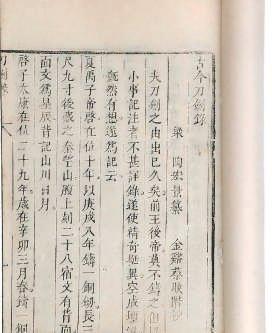 古今刀劍錄
梁 陶宏景纂 金谿蔡
夫刀劍之由出已久矣前王後帝莫不鑄之但
小事記注者不甚詳錄遂使精奇挺異空成堙
慨然有想遂爲記云
夏禹子帝啓在位十年以庚戌八年鑄一銅劍長三
尺九寸後藏之秦望山腹上刻二十八宿文有背
面文爲星辰背記山川日月
啓子太康在位二十九年歲在辛卯三月春鑄一銅